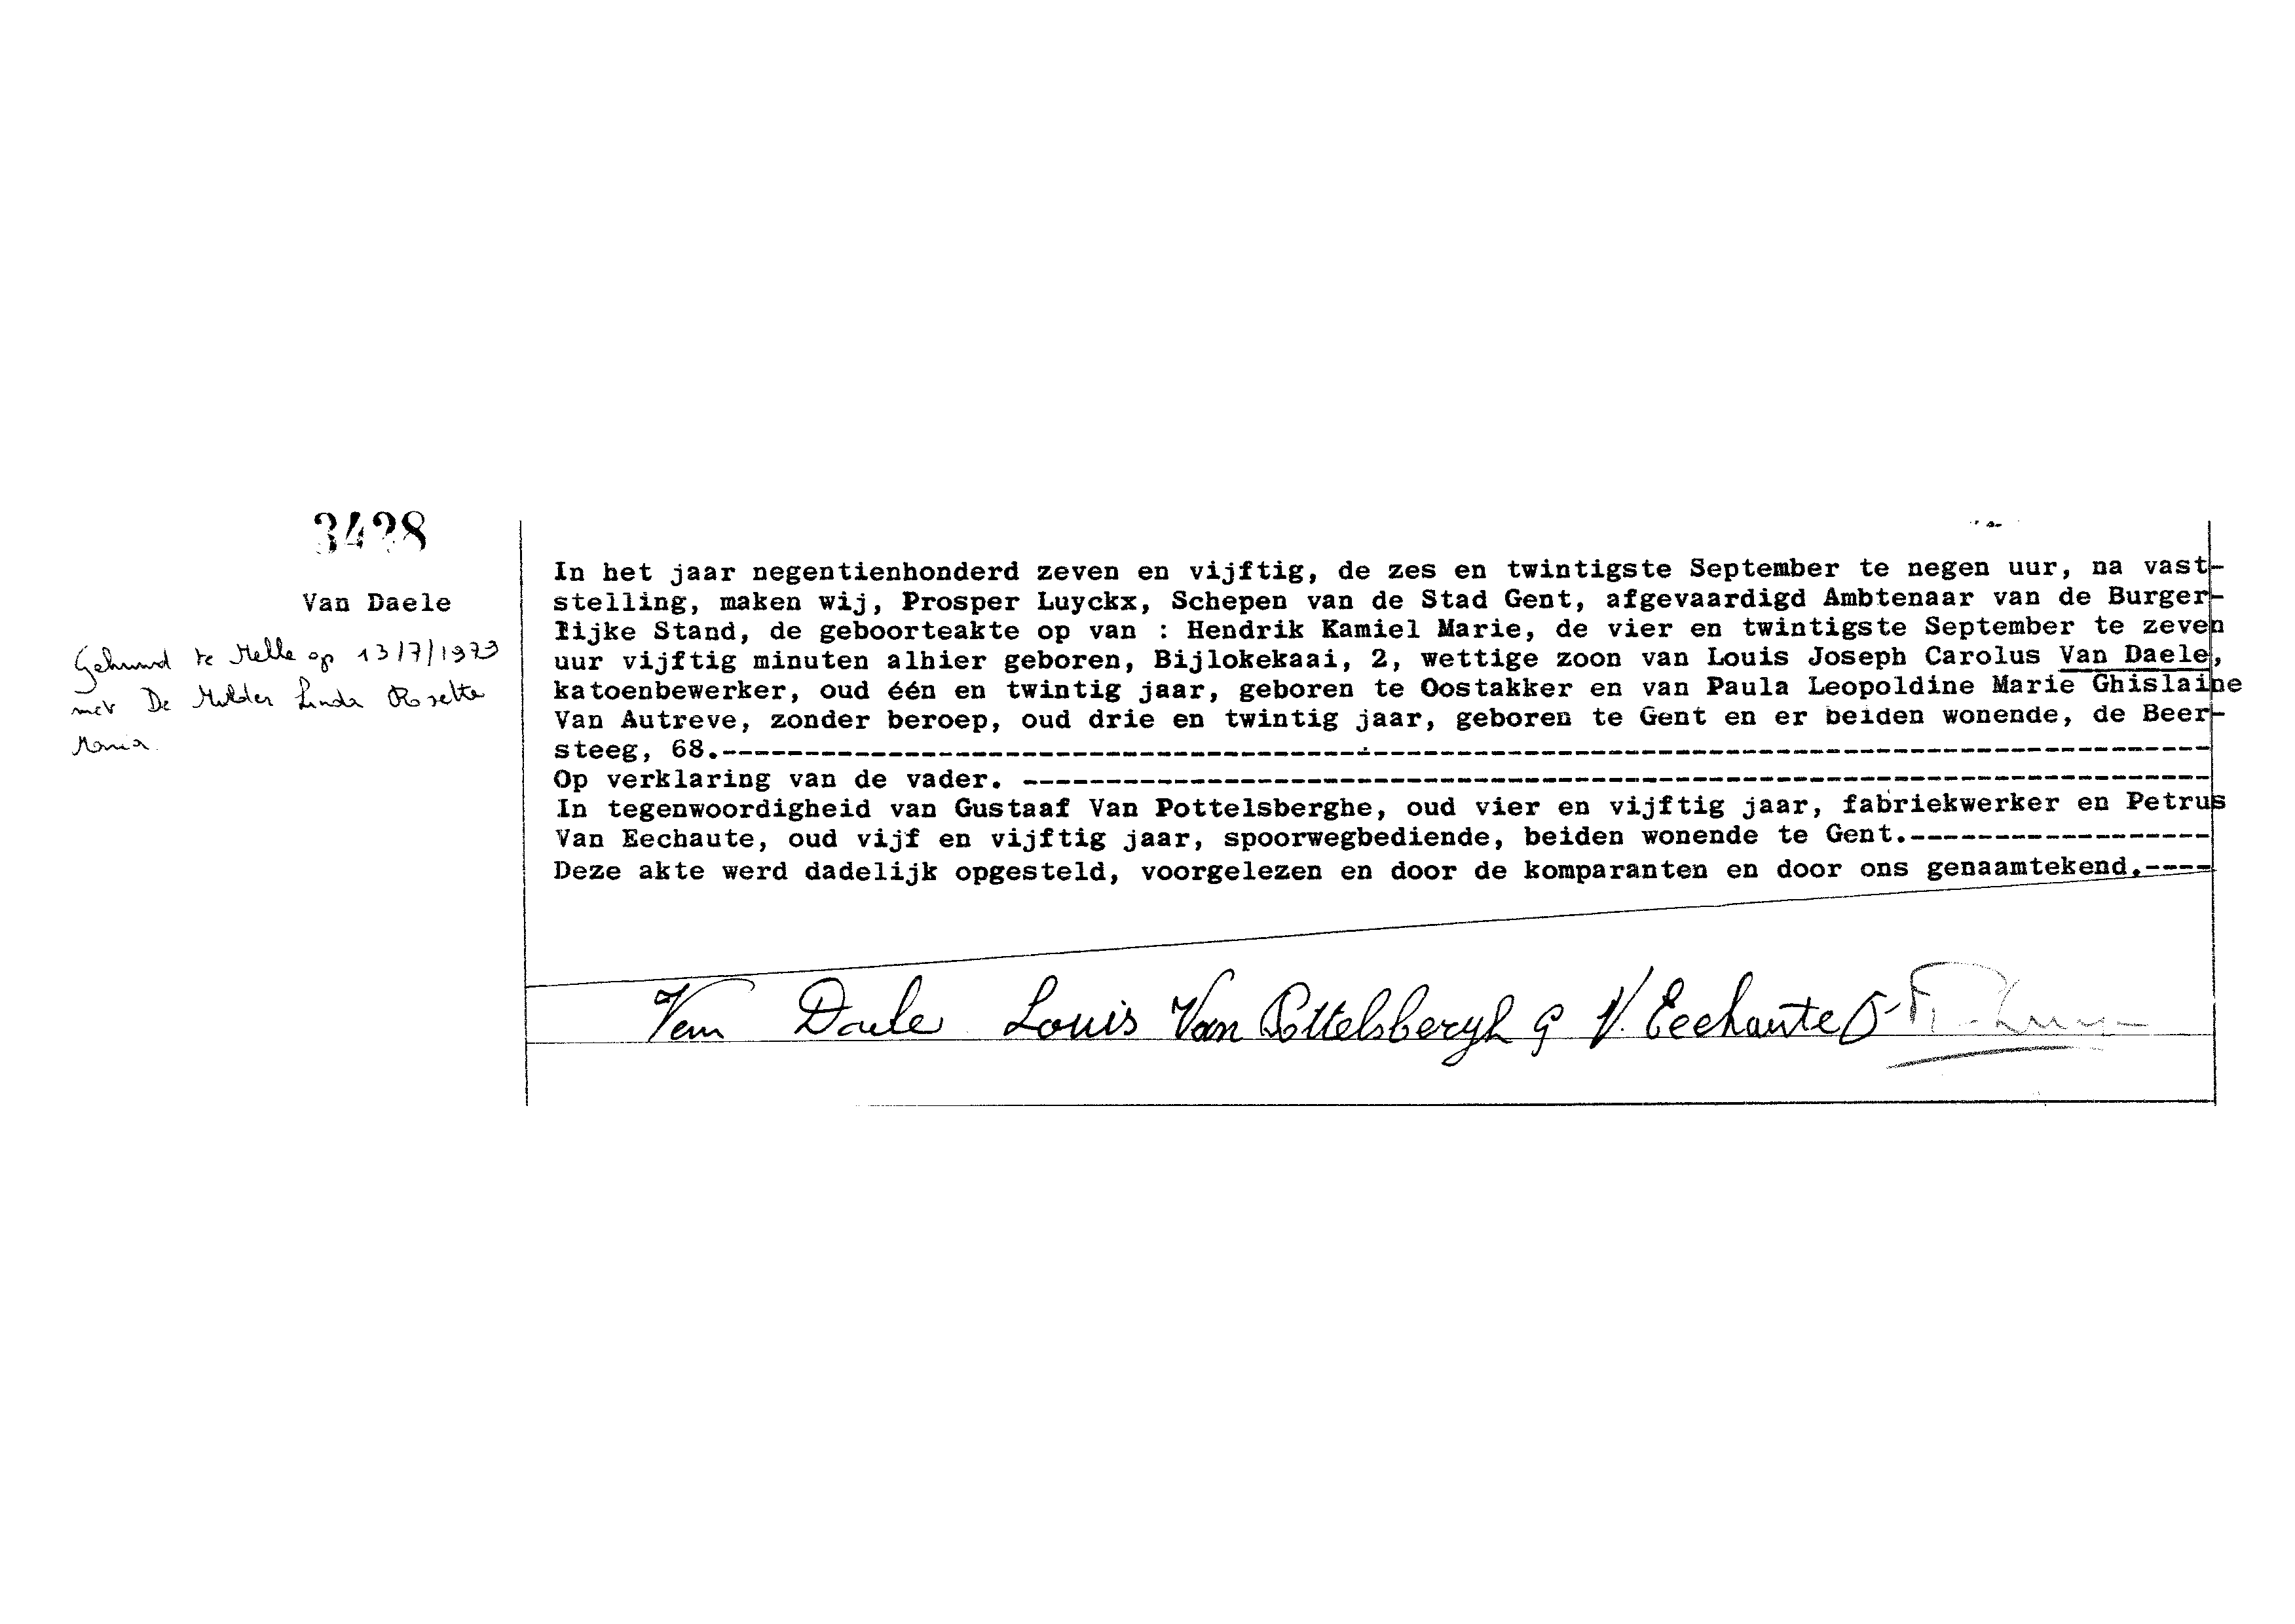 3428
Van Daele
Gehuwd te Melle op 13/7/1979
met De Mulder Linda Rosette
Maria.
In het jaar negentienhonderd zeven en vijftig, de zes en twintigste September te negen uur, na vast-
stelling, maken wij, Prosper Luyckx, Schepen van de Stad Gent, afgevaardigd Ambtenaar van de Burger-
lijke Stand, de geboorteakte op van : Hendrik Kamiel Marie, de vier en twintigste September te zeven
uur vijftig minuten alhier geboren, Bijlokekaai, 2, wettige zoon van Louis Joseph Carolus Van Daele,
katoenbewerker, oud één en twintig jaar, geboren te Oostakker en van Paula Leopoldine Marie Ghislaine
Van Autreve, zonder beroep, oud drie en twintig jaar, geboren te Gent en er beiden wonende, de Beer-
steeg, 68.----------
Op verklaring van de vader. ----------
In tegenwoordigheid van Gustaaf Van Pottelsberghe, oud vier en vijftig jaar, fabriekwerker en Petrus
Van Eechaute, oud vijf en vijftig jaar, spoorwegbediende, beiden wonende te Gent.----------
Deze akte werd dadelijk opgesteld, voorgelezen en door de komparanten en door ons genaamtekend.----
Van Daele Louis Van Pottelsbergh G V. Eechaute